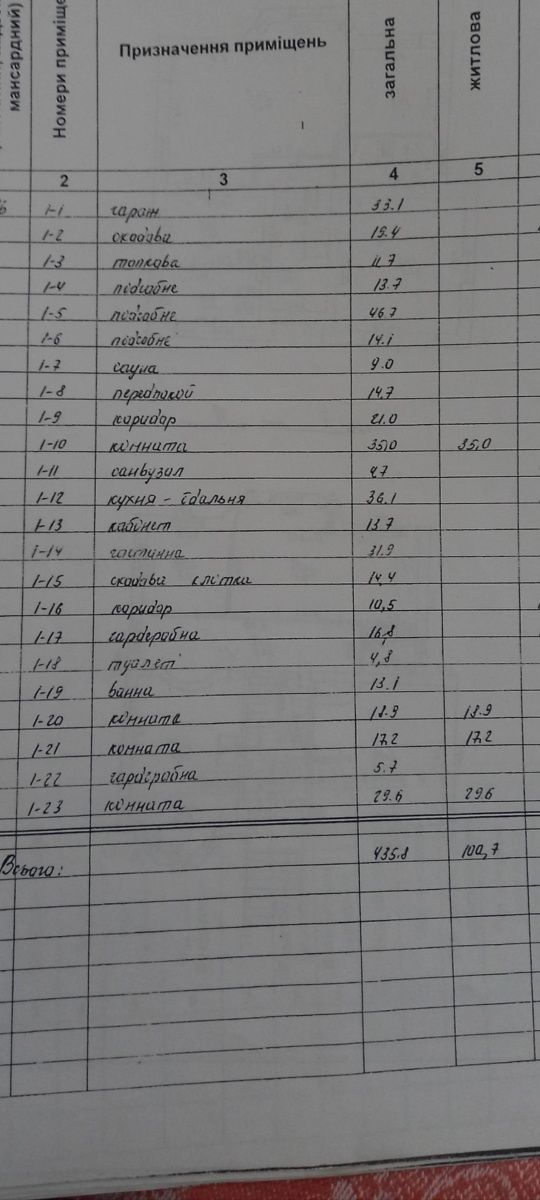 мансардний)
Номери приміще
Призначення приміщень
загальна
житлова
2 3 4 5
1-1 гараж 33.1
1-2 складова 19.4
1-3 топкова 11.7
1-4 підсобне 13.7
1-5 підсобне 46.7
1-6 підсобне 14.1
1-7 сауна 9.0
1-8 передпокой 14.7
1-9 коридор 21.0
1-10 комната 35,0 35.0
1-11 санвузол 4.7
1-12 кухня - їдальня 36.1
1-13 кабінет 13.7
1-14 гостинна 31.9
1-15 сходова клітка 14,4
1-16 коридор 10,5
1-17 гардеробна 16,8
1-18 туалет 4,8
1-19 ванна 13.1
1-20 кімната 18.9 18.9
1-21 комната 17,2 17,2
1-22 гардеробна 5.7
1-23 кімната 29.6 29.6
Всього: 435.8 100,7